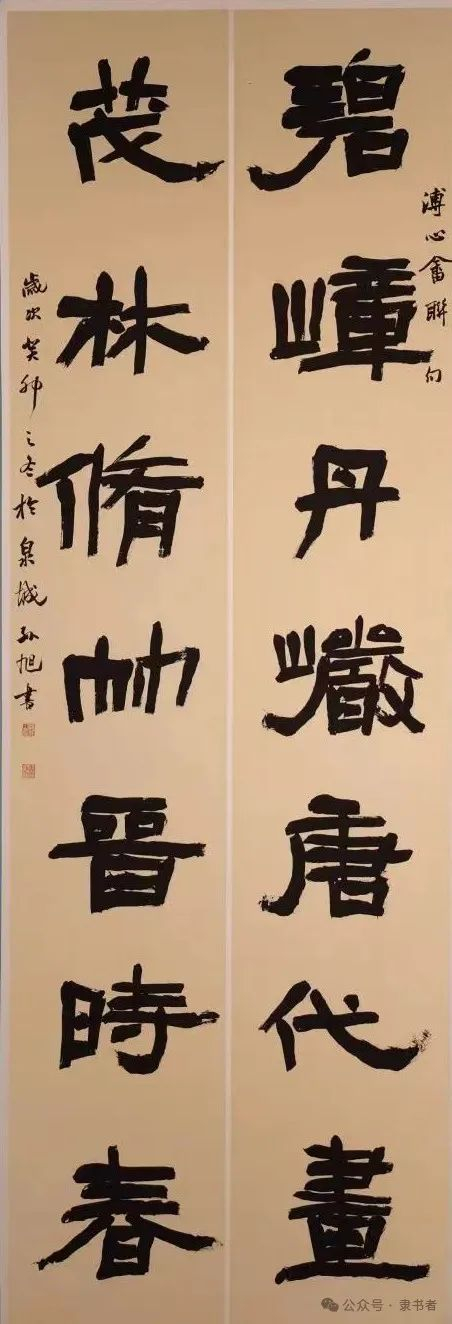 溥心畬聯句
碧嶂丹巖唐代畫
茂林脩竹晉時春
歲次癸卯之冬於泉城孫旭書
公众号 · 隶书者